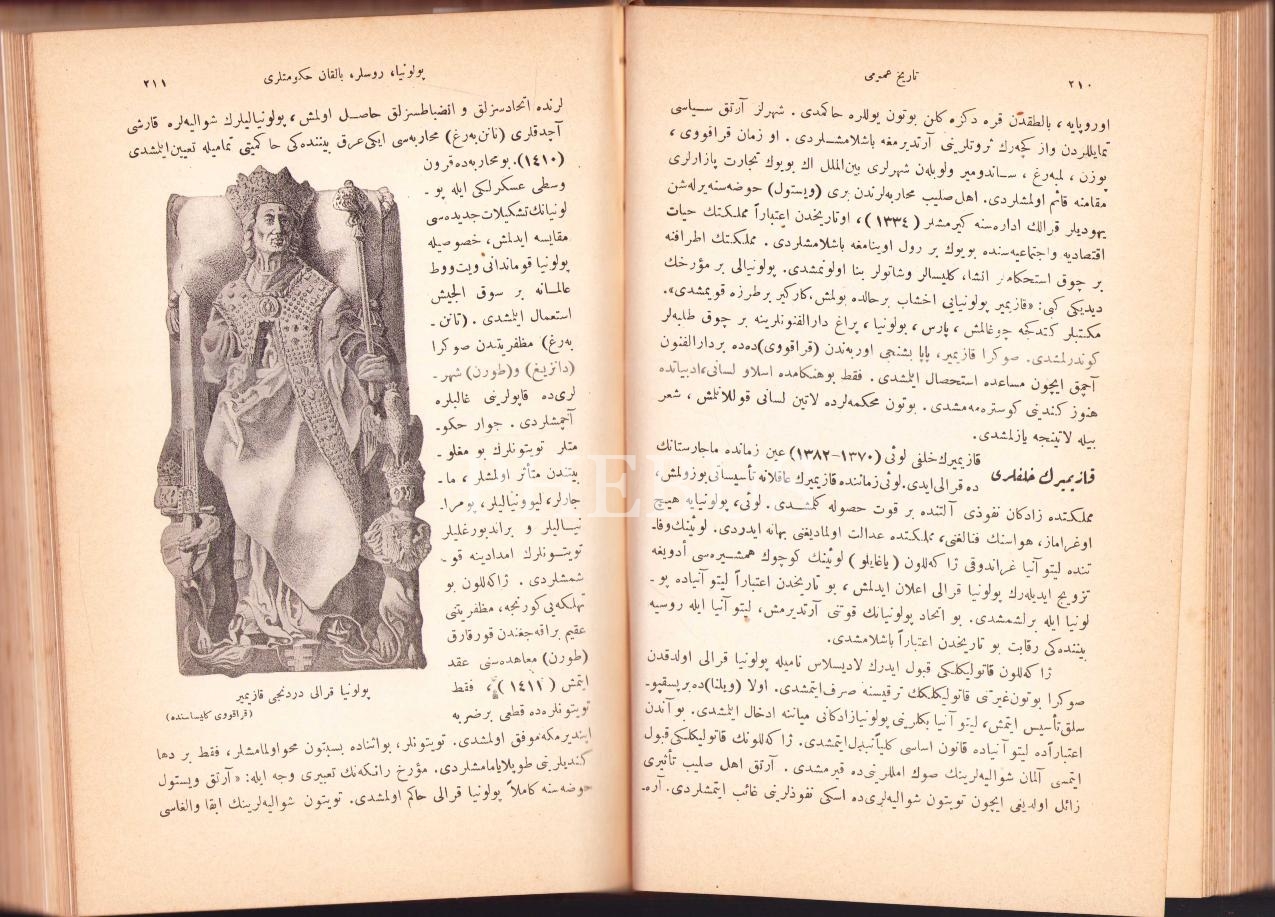 تاریخ عمومی
٢١٠
اوروپایه ، بالطقدن قره دکزه کلن بوتون یوللره حاکمدی . شهرلر آرتق سیاسی
تمایللردن واز کچه‌رك ثروتلرینی آرتدیرمغه باشلامشلردی . او زمان قراقووی ،
پوزن ، لمبه‌رغ ، ساندومیر ولوبلەن شهرلری بین‌الملل اك بویوك تجارت پازارلری
مقامنه قائم اولمشلردی. اهل صلیب محاربه‌لرندن بری (ویستول) حوضه‌سنه یرله‌شن
یهودیلر قرالك اداره‌سنه کیرمشلر (١٣٣٤) ، اوتاریخدن اعتباراً مملکتك حیات
اقتصادیه واجتماعیه‌سنده بویوك بر رول اوینامغه باشلامشلردی . مملکتك اطرافنه
بر چوق استحکامـ انشا، کلیسالر وشاتولر بنا اولونمشدی. پولونیالی بر مؤرخك
دیدیکی کبی: «قازیمیر پولونیایی اخشاب برحالده بولمش.کارکیر برطرزه قویمشدی».
مکتبلر کتدکجه چوغالمش ، پارس ، بولونیا ، پراغ دارالفنونلرینه بر چوق طلبه‌لر
کوندرلمشدی. صوکرا قازیمیر، پاپا بشنجی اوربه‌ندن (قراقووی)ده‌ده بردارالفنون
آچمق ایچون مساعده استحصال ایلمشدی . فقط بوهنکامده اسلاو لسانی،ادبیاتده
هنوز کندینی کوستره‌مه‌مشدی. بوتون محکمه‌لرده لاتین لسانی قوللانلمش ، شعر
بیله لاتینجه یازلمشدی.
قازیمیرك خلفلری
قازیمیرك خلفی لوئی (١٣٧٠-١٣٨٢) عین زمانده ماجارستانك
ده قرالی ایدی. لوئی زماننده قازیمیرك عاقلانه تأسیساتی بوزولمش،
مملکتده زادکان نفوذی آلتنده بر قوت حصوله کلمشدی. لوئی، پولونیایه هیچ
اوغراماز، هواسنك فنالغنی، مملکتده عدالت اولمادیغنی بهانه ایدردی. لوئینك وفا-
تنده لیتوآنیا غراندوقی ژاکه‌للون (یاغایلو) لوئینك کوچوك همشیره‌سی أدویغه
تزویج ایدیله‌رك پولونیا قرالی اعلان ایدلمش ، بو تاریخدن اعتباراً لیتوآنیاده پو -
لونیا ایله برلشمشدی. بو اتحاد پولونیانك قوتنی آرتدیرمش، لیتوآنیا ایله روسیه
بیننده‌کی رقابت بو تاریخدن اعتباراً باشلامشدی.
ژاکه‌للون قاتولیکلکی قبول ایدرك لادیسلاس نامیله پولونیا قرالی اولدقدن
صوکرا بوتون غیرتنی قاتولیکلکك ترقیسنه صرف ایتمشدی. اولا (ویلنا)ده برپسقپو-
سلق تأسیس ایتمش، لیتوآنیا بکلرینی پولونیازادکانی میاننه ادخال ایلمشدی. بو آندن
اعتباراًده لیتوآنیاده قانون اساسی کلیاًتبدیل ایتمشدی. ژاکه‌للونك قاتولیکلکی قبول
ایتمسی آلمان شوالیه‌لرینك صوك امللرینی‌ده قیرمشدی . آرتق اهل صلیب تأثیری
زائل اولدیغی ایچون تویتون شوالیه‌لری‌ده اسکی نفوذلرینی غائب ایتمشلردی. آره-
پولونیا، روسلر، بالقان حکومتلری
٢١١
لرنده اتحادسزلق و انضباطسزلق حاصل اولمش ، پولونیالیلرك شوالیه‌لره قارشی
آچدقلری (تانن‌به‌رغ) محاربه‌سی ایکی عرق بیننده‌کی حاکمیتی تمامیله تعیین ایلمشدی
(١٤١٠). بومحاربه‌ده قرون
وسطی عسکرلکی ایله پو -
لونیانك تشکیلات جدیده‌سی
مقایسه ایدلمش، خصوصیله
پولونیا قوماندانی ویت‌ووط
عالمانه بر سوق الجیش
استعمال ایلمشدی . (تانن -
به‌رغ) مظفریتدن صوکرا
(دانزیغ) و(طورن) شهر -
لری‌ده قاپولرینی غالبلره
آچمشلردی . جوار حکو-
متلر تویتونلرك بو مغلو -
بیتندن متأثر اولمشلر ، ما -
جارلر، لیوونیالیلر، پومرا-
نیالیلر و براندبورغلیلر
تویتونلرك امدادینه قو -
شمشلردی . ژاکه‌للون بو
تهلکه‌یی کورنجه، مظفریتنی
عقیم براقه‌جغندن قورقارق
(طورن) معاهده‌سنی عقد
ایتمش (١٤١١)، فقط
تویتونلره‌ده قطعی برضربه
پولونیا قرالی دردنجی قازیمیر
(قراقووی کلیساسنده)
ایندیرمکه موفق اولمشدی. تویتونلر، بواثناده بسبتون محواولمامشلر، فقط بر دها
کندیلرینی طوپلایامامشلردی. مؤرخ رانکه‌نك تعبیری وجه ایله: «آرتق ویستول
حوضه‌سنه کاملاً پولونیا قرالی حاکم اولمشدی. تویتون شوالیه‌لرینك ابقا والغاسی